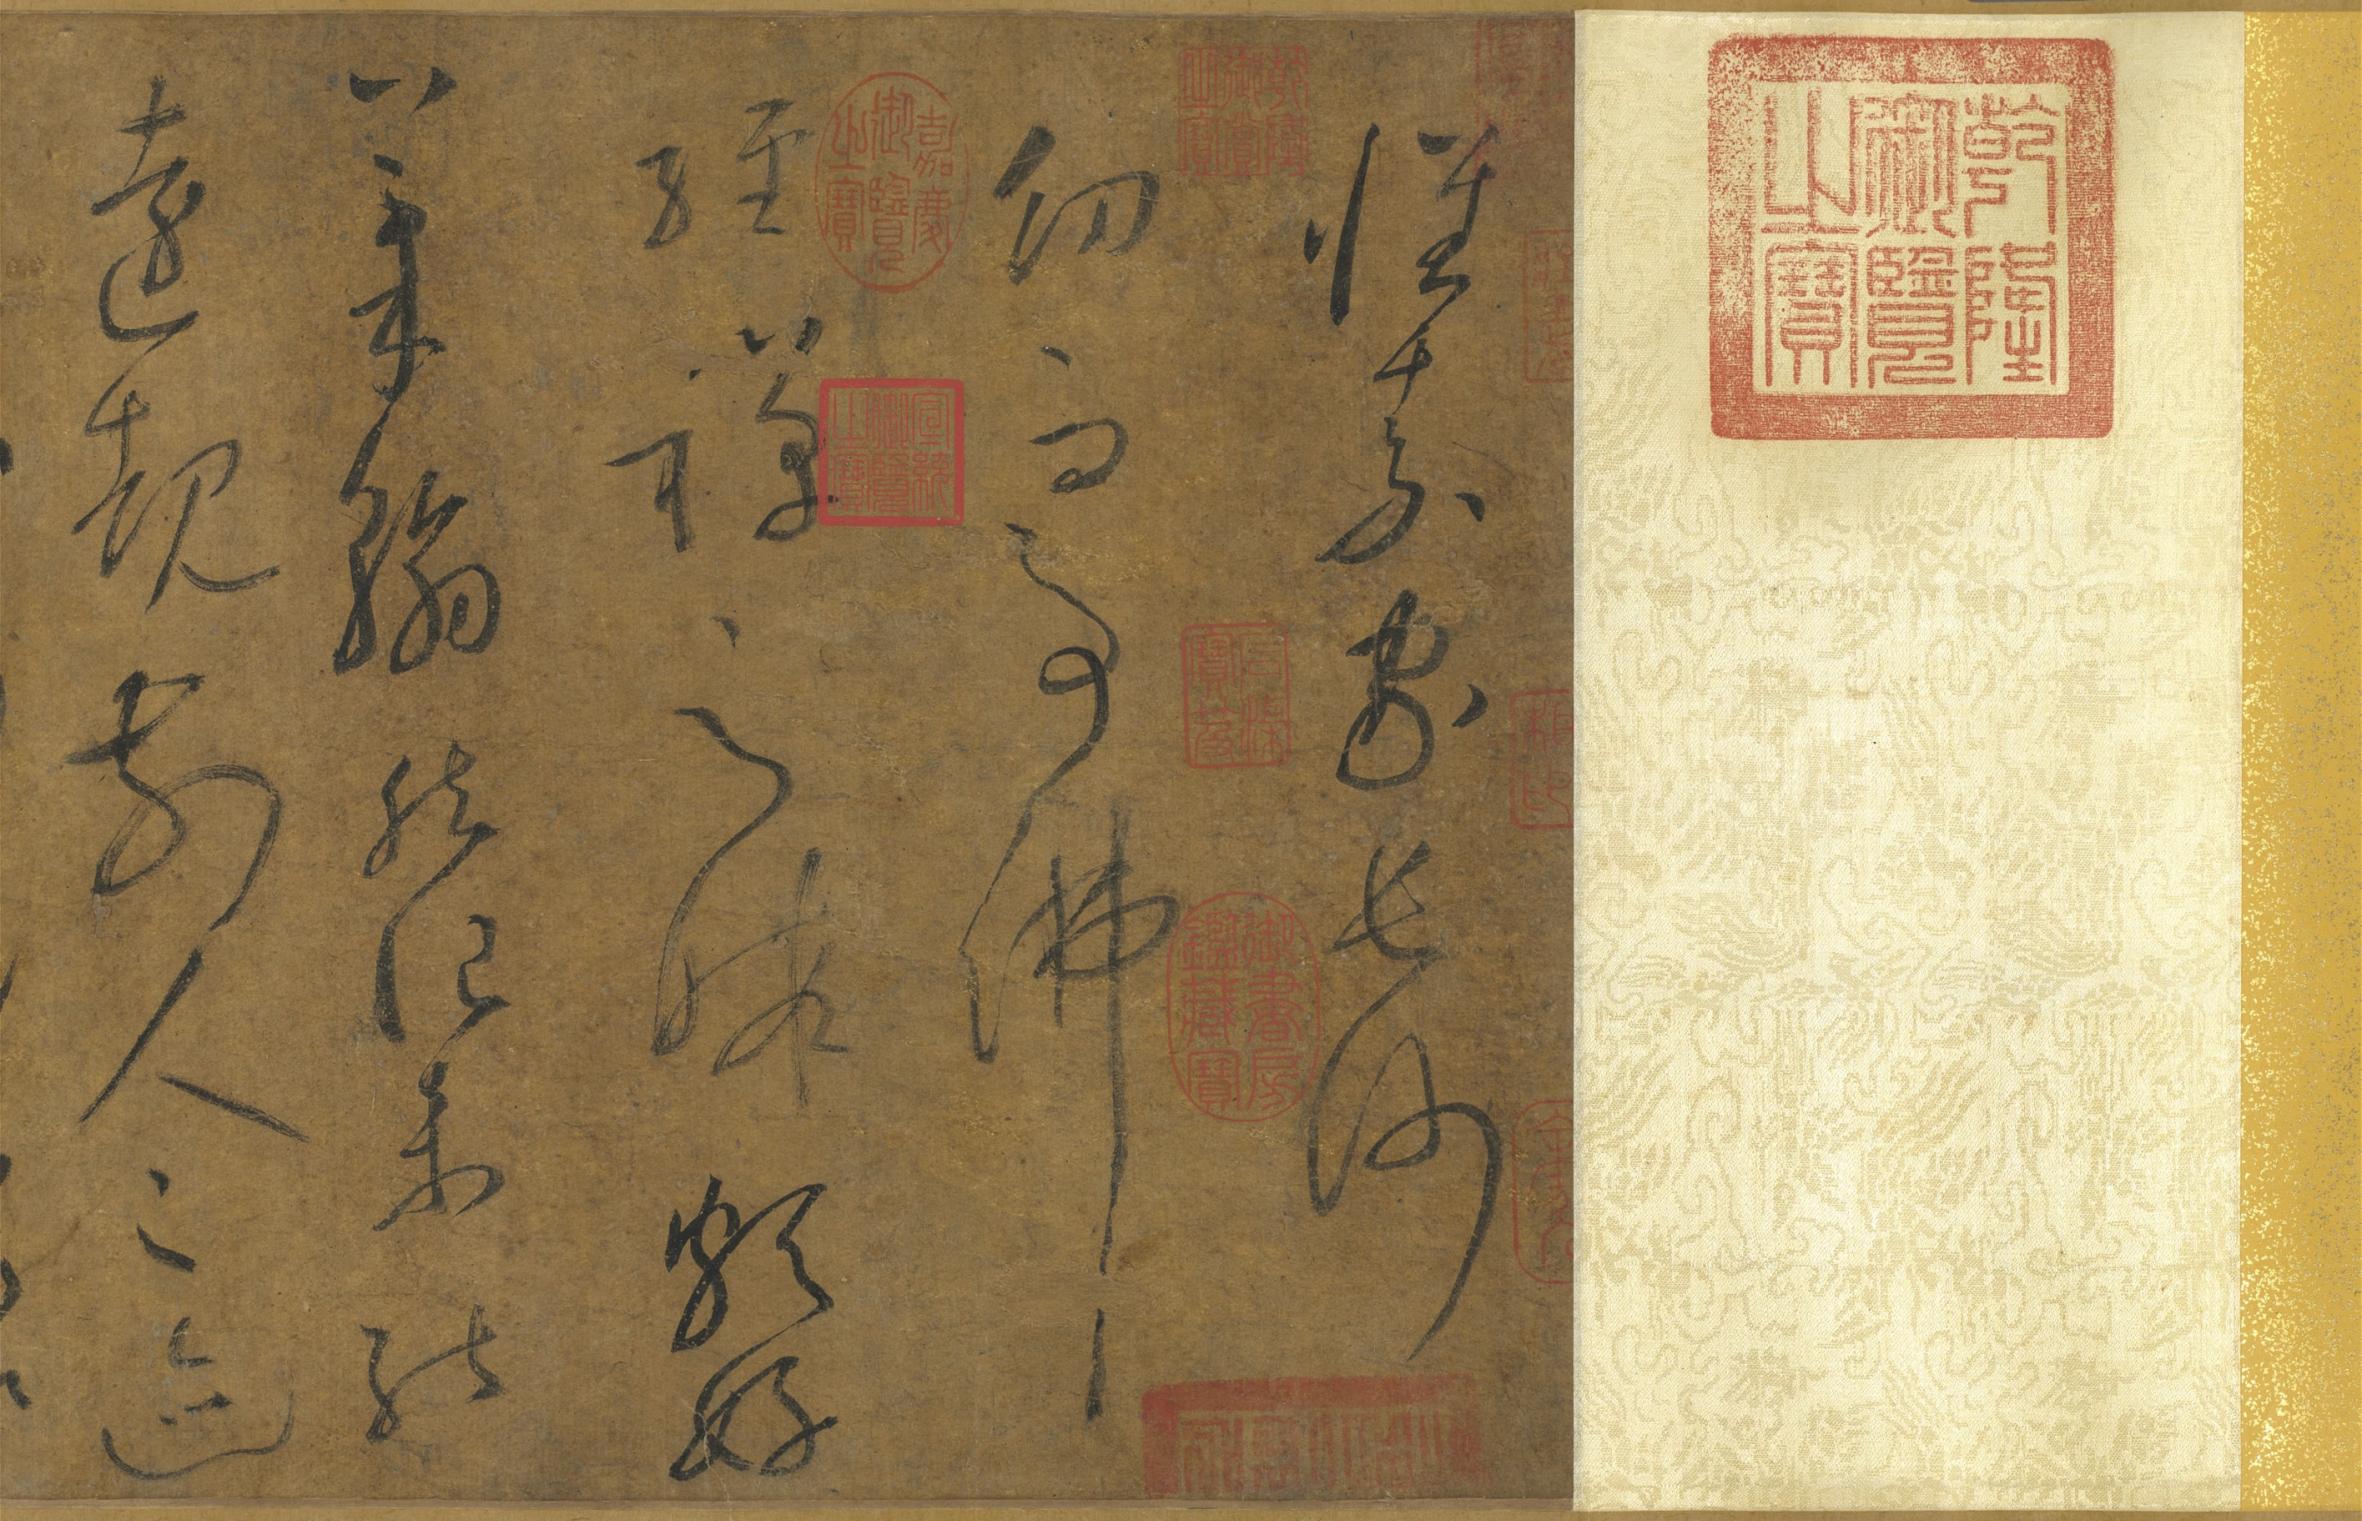 乾隆御覽之寶
懷素家長沙
幼而事佛
經禪之暇頗好
筆翰然恨未能
遠覩前人之
嘉慶御覽之寶
宣統御覽之寶
石渠寶笈
御書房鑑藏寶